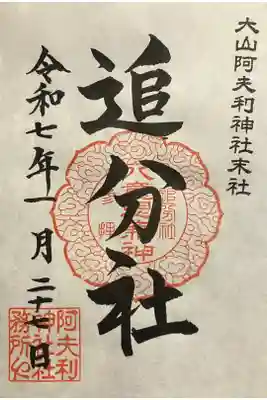 大山阿夫利神社末社
追分社
令和七年一月二十七日
阿夫利
神社社
務所之